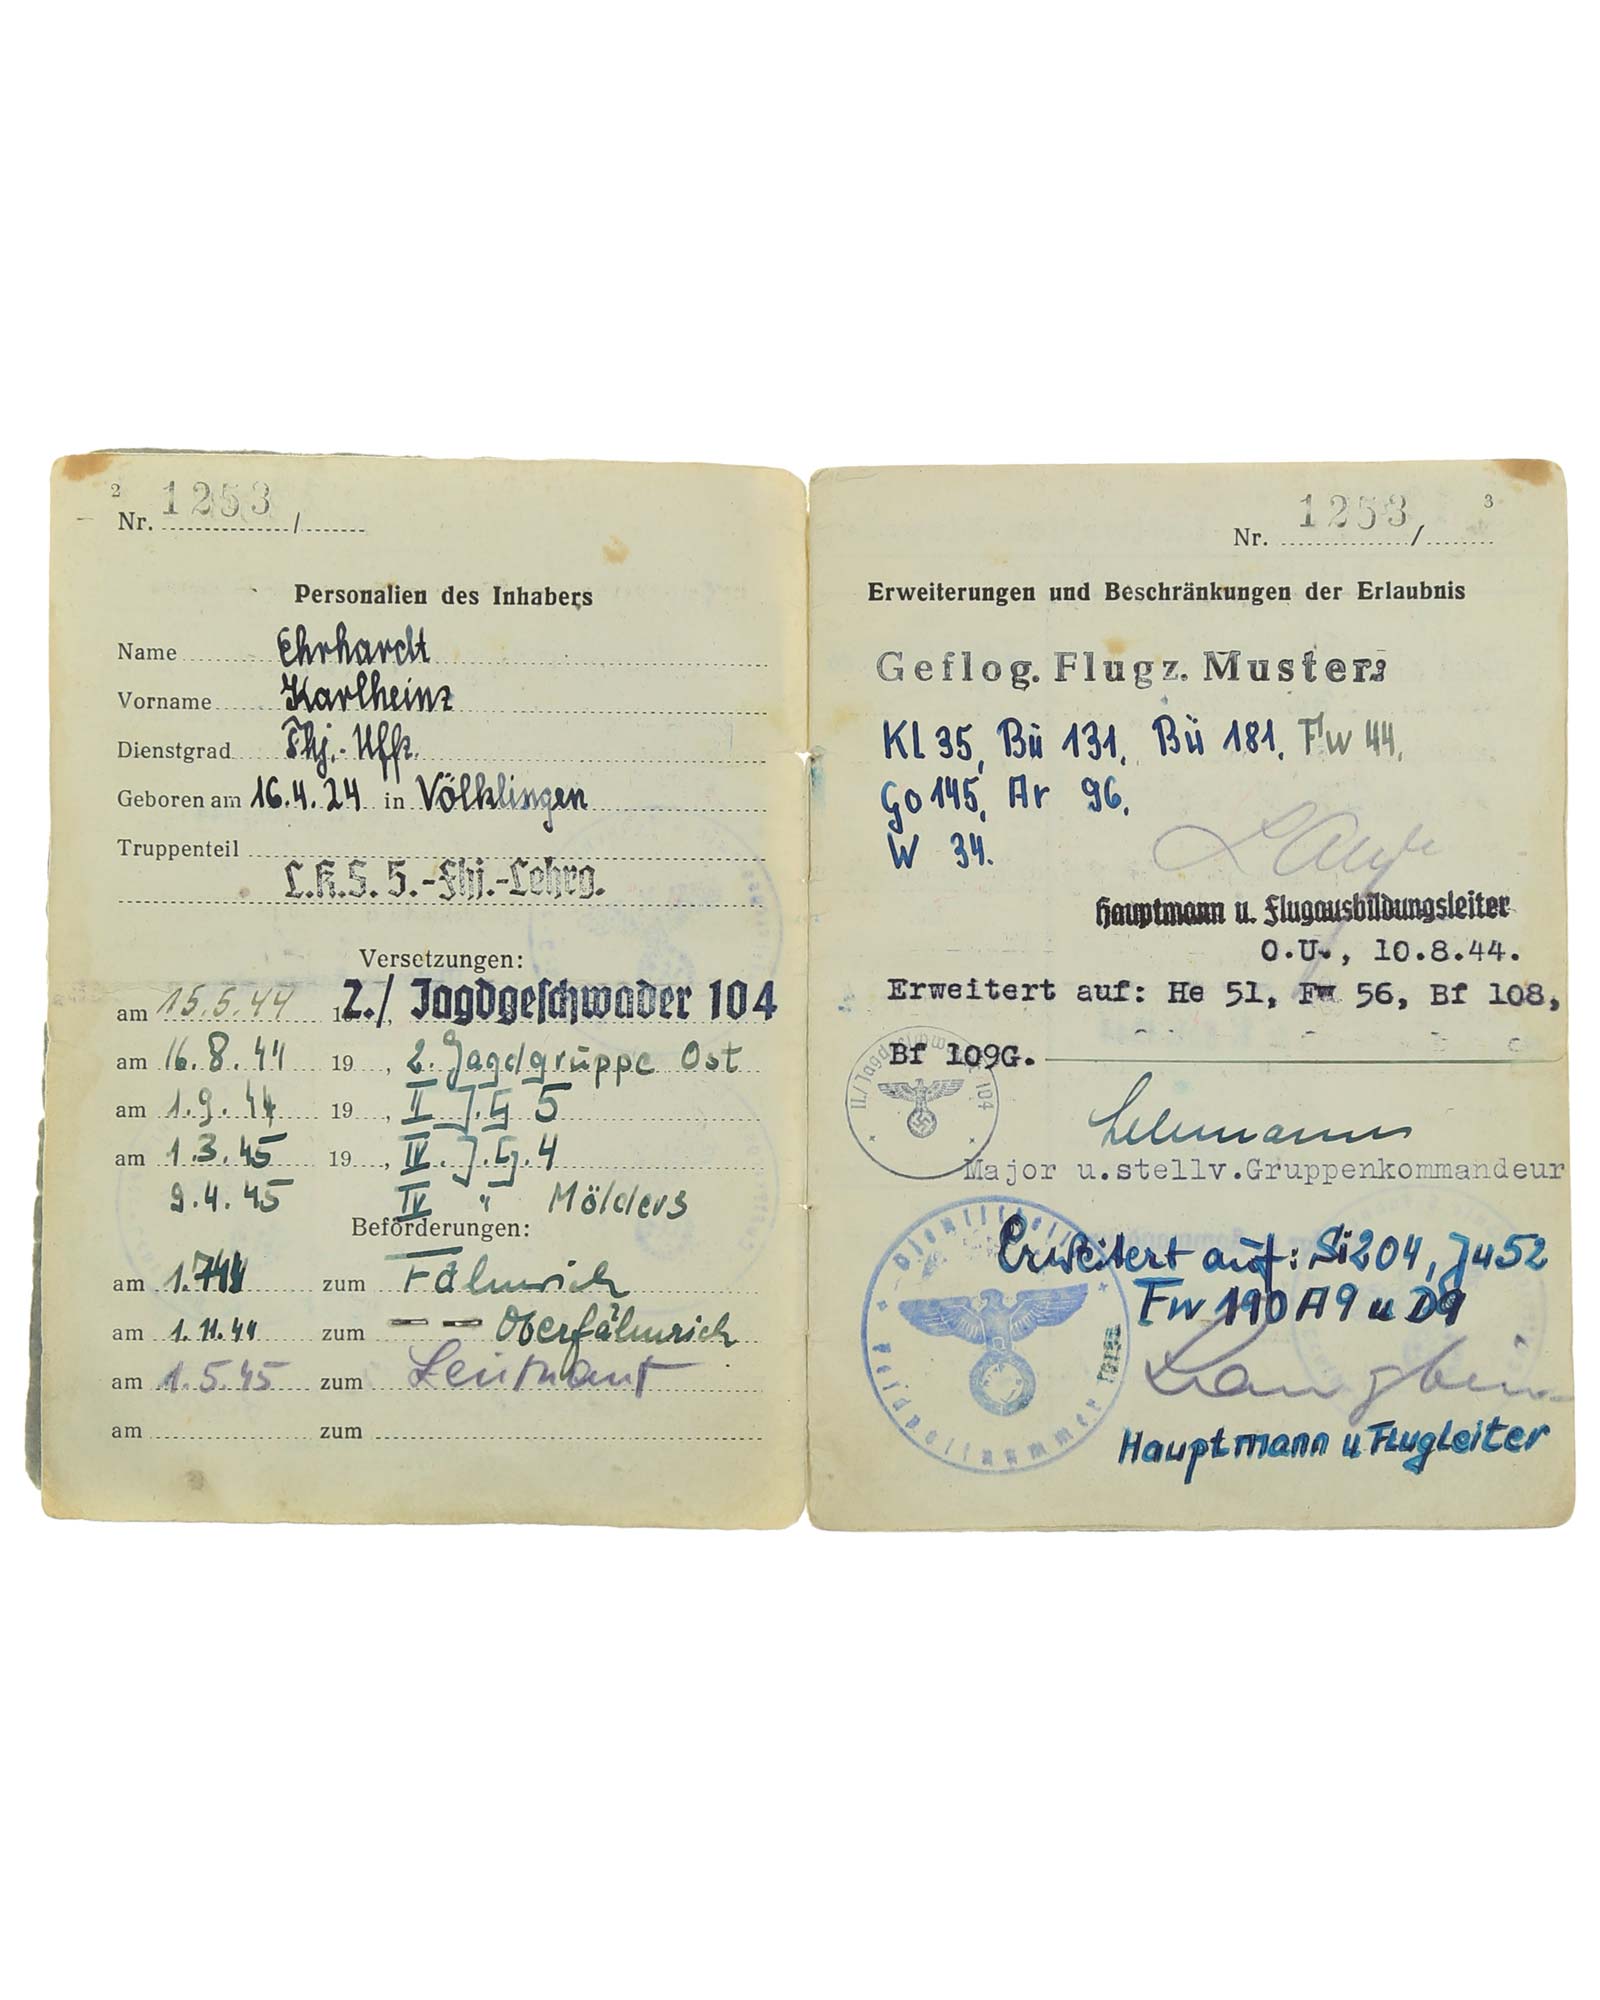 2
Nr. 1253 /
Personalien des Inhabers
Name Ehrhardt
Vorname Karlheinz
Dienstgrad Fhj.-Uffz.
Geboren am 16.4.24 in Völklingen
Truppenteil
L.K.S. 5.-Fhj.-Lehrg.
Versetzungen:
am 15.5.44 19 2./Jagdgeschwader 104
am 16.8.44 19 , 2. Jagdgruppe Ost
am 1.9.44 19 , II J.G 5
am 1.3.45 19 , IV. J.G.4
9.4.45 IV " Mölders
Beförderungen:
am 1.7.44 zum Fähnrich
am 1.11.44 zum — — Oberfähnrich
am 1.5.45 zum Leutnant
am zum
3
Nr. 1253 /
Erweiterungen und Beschränkungen der Erlaubnis
Geflog. Flugz. Muster:
Kl 35, Bü 131, Bü 181, Fw 44,
Go 145, Ar 96,
W 34.
Hauptmann u. Flugausbildungsleiter
O.U., 10.8.44.
Erweitert auf: He 51, Fw 56, Bf 108,
Bf 109G.
II./Jagdgeschwader 104
Lehmann
Major u.stellv.Gruppenkommandeur
Erweitert auf: Si204, Ju52
Fw 190 A9 u D9
Dienststelle Feldpostnummer
Langbein
Hauptmann u Flugleiter